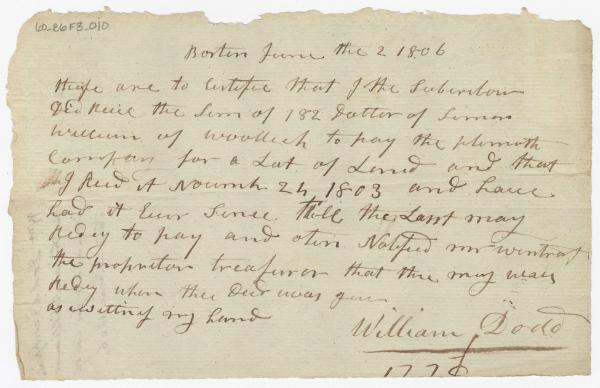 60-86F3-010
Boston June the 2 1806
these are to Certifie that I the Subcribor
Did Reie the Sum of 182 Dollor of Simon
William of woollich to pay the plimoth
Compan for a Lot of Lend and that
I Reid it Nounth 24 1803 and haue
had it Euer Since till the Last may
Redey to pay and oten Notified mr wintrof
the propritor treasuror that the mny was
Redey when the Deed was gu
as wittnes my hand
William Dodd